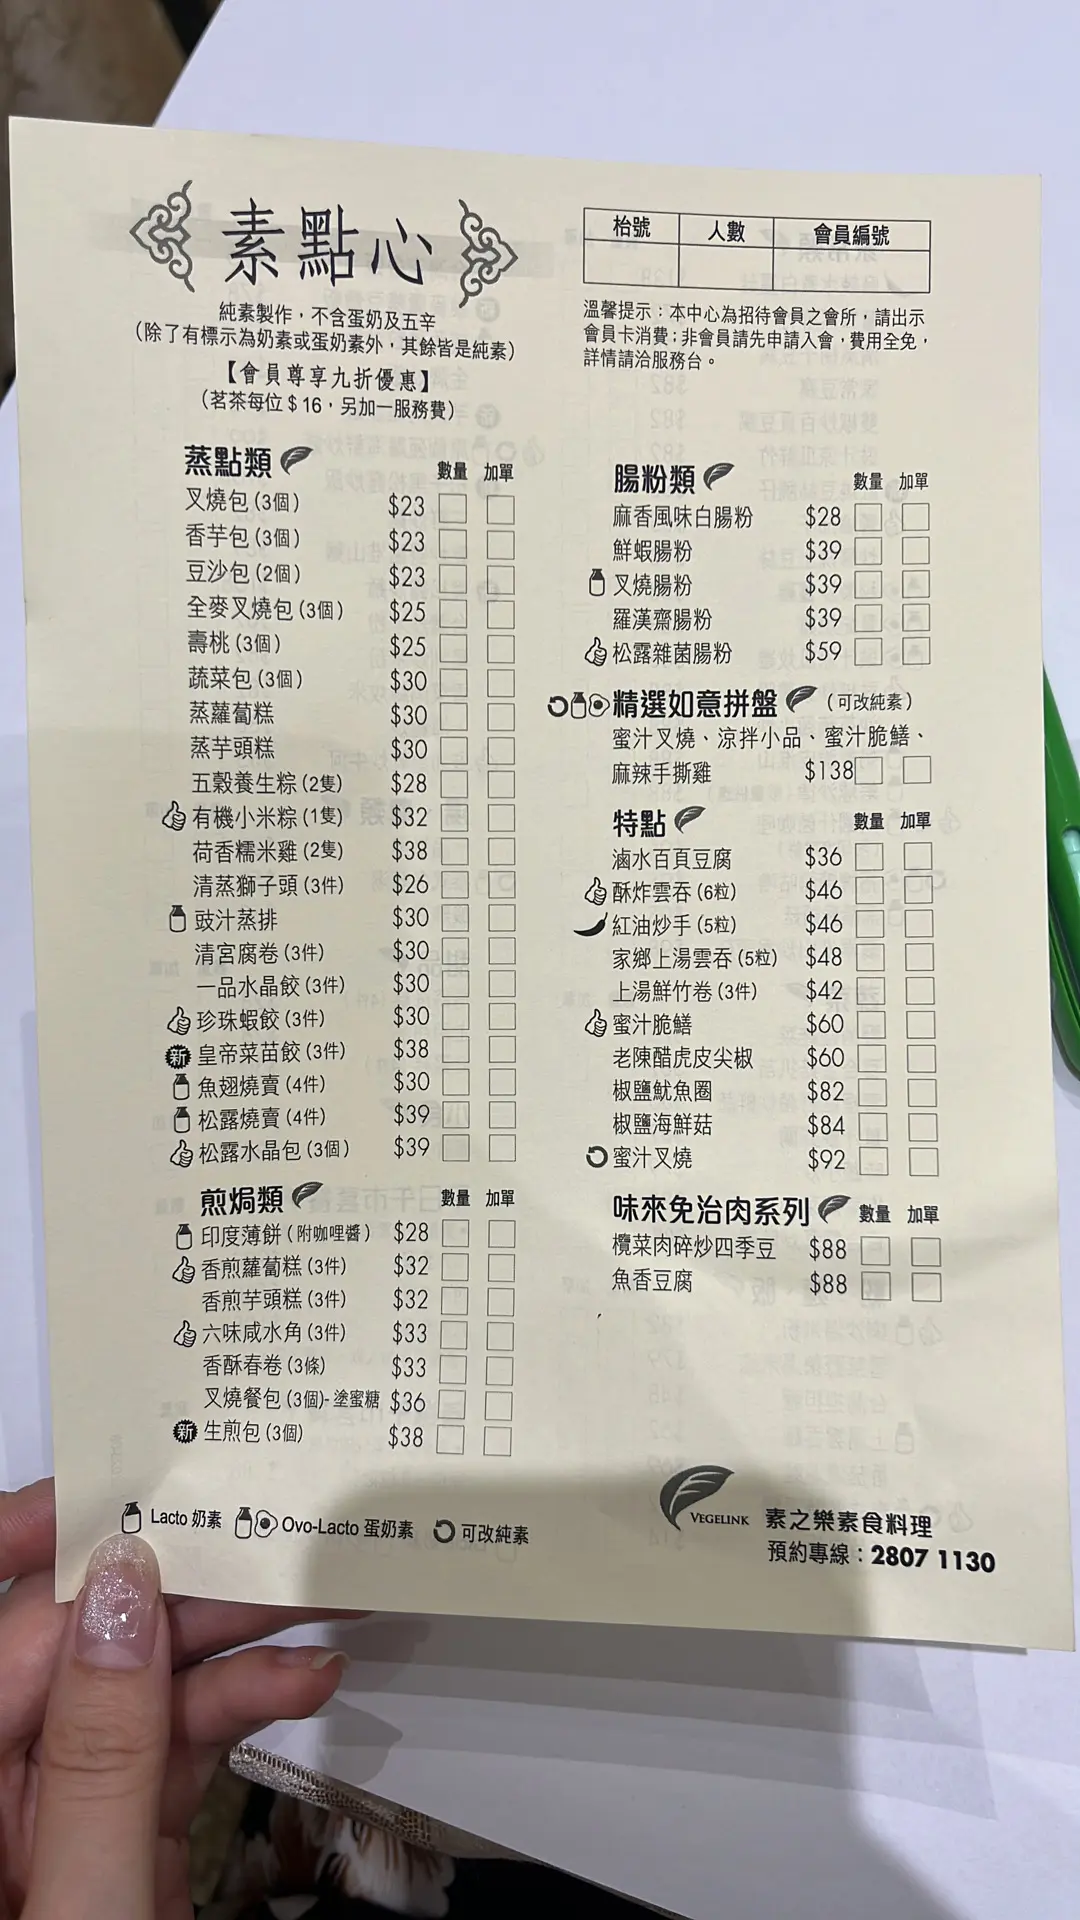 素點心
純素製作，不含蛋奶及五辛
(除了有標示為奶素或蛋奶素外，其餘皆是純素)
【會員尊享九折優惠】
(茗茶每位$16，另加一服務費)
枱號 人數 會員編號
溫馨提示：本中心為招待會員之會所，請出示
會員卡消費；非會員請先申請入會，費用全免，
詳情請洽服務台。
蒸點類 數量 加單
叉燒包(3個) $23
香芋包(3個) $23
豆沙包(2個) $23
全麥叉燒包(3個) $25
壽桃(3個) $25
蔬菜包(3個) $30
蒸蘿蔔糕 $30
蒸芋頭糕 $30
五穀養生粽(2隻) $28
有機小米粽(1隻) $32
荷香糯米雞(2隻) $38
清蒸獅子頭(3件) $26
豉汁蒸排 $30
清宮腐卷(3件) $30
一品水晶餃(3件) $30
珍珠蝦餃(3件) $30
新 皇帝菜苗餃(3件) $38
魚翅燒賣(4件) $30
松露燒賣(4件) $39
松露水晶包(3個) $39
煎焗類 數量 加單
印度薄餅(附咖哩醬) $28
香煎蘿蔔糕(3件) $32
香煎芋頭糕(3件) $32
六味咸水角(3件) $33
香酥春卷(3條) $33
叉燒餐包(3個)-塗蜜糖 $36
新 生煎包(3個) $38
腸粉類 數量 加單
麻香風味白腸粉 $28
鮮蝦腸粉 $39
叉燒腸粉 $39
羅漢齋腸粉 $39
松露雜菌腸粉 $59
精選如意拼盤 (可改純素)
蜜汁叉燒、涼拌小品、蜜汁脆鱔、
麻辣手撕雞 $138
特點 數量 加單
滷水百頁豆腐 $36
酥炸雲吞(6粒) $46
紅油炒手(5粒) $46
家鄉上湯雲吞(5粒) $48
上湯鮮竹卷(3件) $42
蜜汁脆鱔 $60
老陳醋虎皮尖椒 $60
椒鹽魷魚圈 $82
椒鹽海鮮菇 $84
蜜汁叉燒 $92
味來免治肉系列 數量 加單
欖菜肉碎炒四季豆 $88
魚香豆腐 $88
Lacto 奶素 Ovo-Lacto 蛋奶素 可改純素
VEGELINK 素之樂素食料理
預約專線：2807 1130